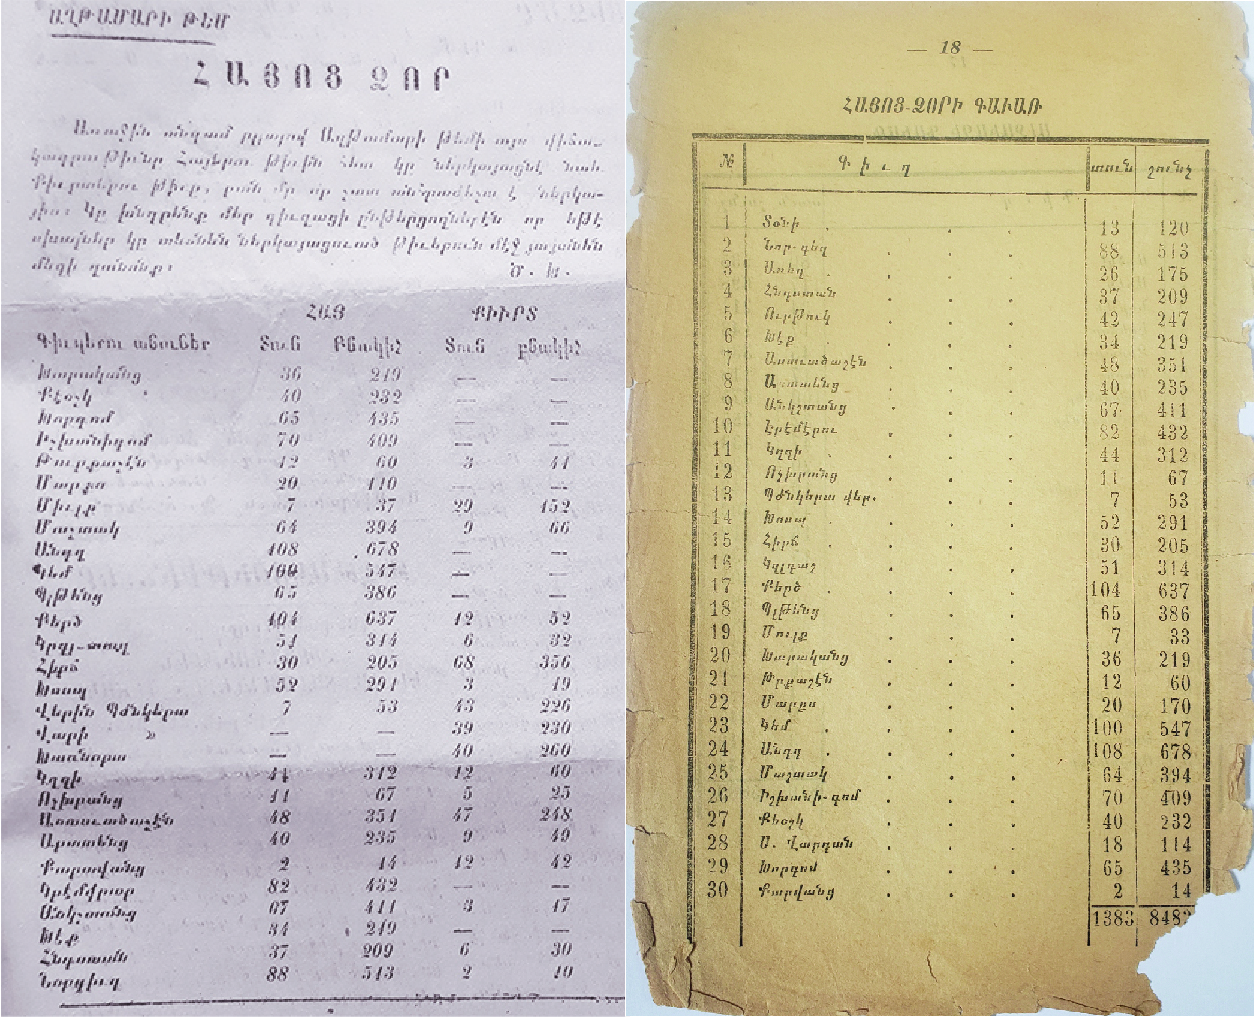 ԱՂԹԱՄԱՐԻ ԹԵՄ
ՀԱՅՈՑ ՁՈՐ
Առաջին անգամ ըլլալով Աղթամարի Թեմի այս վիճա-
կագրութիւնը Հայերու թիւին հետ կը ներկայացնէ նաև
Քիւրտերու թիւը, բան մը որ շատ անհրաժեշտ է ներկա-
յիս։ Կը խնդրենք մեր գիւղացի ընթերցողներէն որ եթէ
սխալներ կը տեսնեն ներկայացուած թիւերուն մէջ յայտնեն
մեզի զանոնք։ Ծ. Խ.
ՀԱՅ ՔԻՒՐՏ
Գիւղերու անուններ Տուն Բնակիչ Տուն բնակիչ
Խարականց 36 219 — —
Քէօշկ 40 232 — —
Խորգոմ 65 435 — —
Իշխանիգոմ 70 409 — —
Թարքաշէն 12 60 3 41
Մարքս 20 110 — —
Միւլք 7 37 29 152
Մաշտակ 64 394 9 66
Անգղ 108 678 — —
Կեմ 100 547 — —
Պլթենց 65 386 — —
Բերծ 104 637 12 52
Կըզլ-տաշ 51 314 6 32
Հիրճ 30 205 68 356
Խոսպ 52 291 3 19
Վերին Պժնկերտ 7 53 43 226
Վարի » — — 39 230
Խառնուրտ — — 40 260
Կղզի 44 312 12 60
Ոչխրանց 11 67 5 25
Աստուածաշէն 48 351 47 248
Արատենց 40 235 9 49
Քարավանց 2 14 12 42
Կրէմէրար 82 432 — —
Անկշտանց 67 411 3 17
Խէք 34 219 — —
Հնդստան 37 209 6 30
Նորգիւղ 88 513 2 10
— 18 —
ՀԱՅՈՑ-ՁՈՐԻ ԳԱՒԱՌ
№ Գիւղ տուն շունչ
1 Տօնի 13 120
2 Նոր-գեղ 88 513
3 Ատեղ 26 175
4 Հնդստան 37 209
5 Ուրթուկ 42 247
6 Խէք 34 219
7 Աստուածաշէն 48 351
8 Առատենց 40 235
9 Անկշտանց 67 411
10 Էրէմէրու 82 432
11 Կղզի 44 312
12 Ոչխրանց 11 67
13 Պժնկերտ վեր. 7 53
14 Խոսպ 52 291
15 Հիրճ 30 205
16 Կզլդաշ 51 314
17 Բերծ 104 637
18 Պլթենց 65 386
19 Մուլք 7 33
20 Խարականց 36 219
21 Թրքաշէն 12 60
22 Մարքս 20 170
23 Կեմ 100 547
24 Անգղ 108 678
25 Մաշտակ 64 394
26 Իշխանի-գոմ 70 409
27 Քեօշկ 40 232
28 Ս. Վարդան 18 114
29 Խորգոմ 65 435
30 Քարվանց 2 14
1383 8482